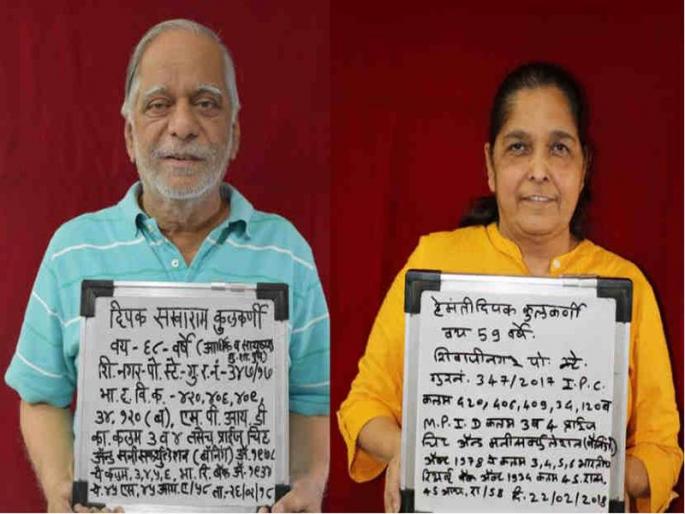 दिपक सखाराम कुलकर्णी
वय -६८- वर्षे (आर्थिक व सायबर
गु. शा. पुणे)
शि.नगर-पो. स्टे- गु.र.नं- ३४७/१७
भा. द. वि. क. - ४२०, ४०६, ४०९,
३४, १२०(ब), एम. पी. आय. डी
का. कलम ३ व ४ तसेच प्राईज चिट
अॅन्ड मनीसर्क्युलेशन (बॅनिंग) अॅ. १९७८
चे कलम, ३,४,५,६, भा. रि. बँक अॅ. १९३४
चे ४५ एस, ४५ आय. ए/५८ ता-२६/०२/१८
हेमंती दिपक कुलकर्णी
वय 59 वर्षे.
शिवाजीनगर पो. स्टे.
गुरनं. 347/2017 I.P.C.
कलम 420, 406, 409, 34, 120ब
M.P.I.D कलम 3 व 4 प्राईज
चिट अॅन्ड मनीसर्क्युलेशन (बॅनिंग)
अॅक्ट 1978 चे कलम 3,4,5,6 भारतीय
रिझर्व्ह बँक अॅक्ट 1934 कलम 45.एस.
45 आय. ए/58 दि. 22/02/2018